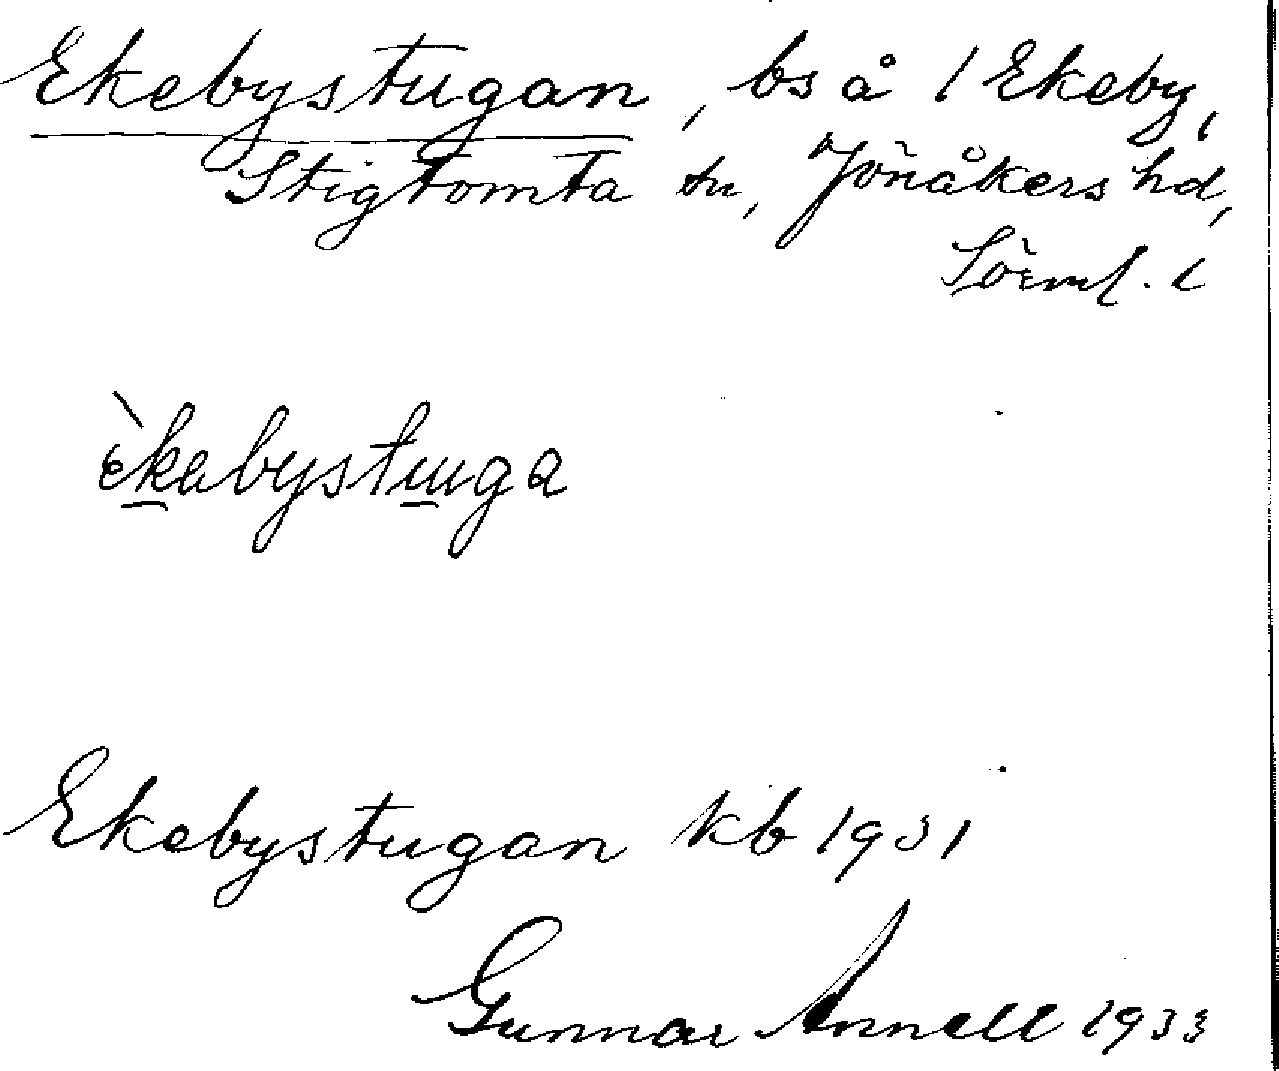 Ekebystugan, bs å 1 Ekeby,
Stigtomta sn, Jönåkers hd,
Sörml. l
èkabystuga
Ekebystugan kb 1931
Gunnar Annell 1933